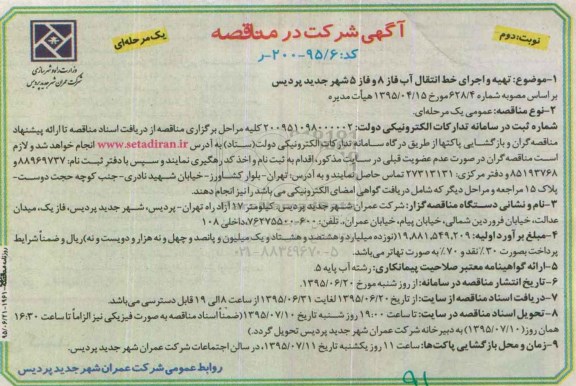 آگهی شرکت در مناقصه
نوبت: دوم
یک مرحله‌ای
کد: ۹۵/۶-۲۰۰-ر
وزارت راه و شهرسازی
شرکت عمران شهر جدید پردیس
۱-موضوع: تهیه و اجرای خط انتقال آب فاز ۸ و فاز ۵ شهر جدید پردیس
بر اساس مصوبه شماره ۶۲۸/۴ مورخ ۱۳۹۵/۰۴/۱۵ هیأت مدیره
۲-نوع مناقصه: عمومی یک مرحله‌ای.
شماره ثبت در سامانه تدارکات الکترونیکی دولت: ۲۰۰۹۵۱۰۹۸۰۰۰۰۰۲ کلیه مراحل برگزاری مناقصه از دریافت اسناد مناقصه تا ارائه پیشنهاد
مناقصه‌گران و بازگشایی پاکتها از طریق درگاه سامانه تدارکات الکترونیکی دولت(ستاد) به آدرس www.setadiran.ir انجام خواهد شد و لازم
است مناقصه گران در صورت عدم عضویت قبلی در سایت مذکور، اقدام به ثبت نام و اخذ کد رهگیری نمایند و سپس با دفتر ثبت نام: ۸۸۹۶۹۷۳۷و
۸۵۱۹۳۷۶۸ و دفتر مرکزی: ۲۷۳۱۳۱۳۱ تماس حاصل نمایند و به آدرس: تهران- بلوار کشاورز- خیابان شهید نادری- جنب کوچه حجت دوست-
پلاک ۱۵ مراجعه و مراحل دیگر که شامل دریافت گواهی امضای الکترونیکی می باشد را نیز انجام دهند.
۳-نام و نشانی دستگاه مناقصه گزار: شرکت عمران شهر جدید پردیس- کیلومتر ۱۷ آزاد راه تهران- پردیس، شهر جدید پردیس، فاز یک، میدان
عدالت، خیابان فروردین شمالی، خیابان پیام، خیابان عمران. تلفن: ۶۰۰-۷۶۲۷۵۵۰۰،داخلی ۱۰۸
۴-مبلغ برآورد اولیه: ۱۹،۸۸۱،۵۴۹،۲۰۹(نوزده میلیارد و هشتصد و هشتاد و یک میلیون و پانصد و چهل و نه هزار و دویست و نه)ریال و ضمناً شرایط
پرداخت بصورت ۳۰٪ نقد و ۷۰٪ به صورت تهاتر می‌باشد.
۵-ارائه گواهینامه معتبر صلاحیت پیمانکاری: رشته آب پایه ۵.
۶-تاریخ انتشار مناقصه در سامانه: از روز شنبه مورخ ۱۳۹۵/۰۶/۲۰.
۷-دریافت اسناد مناقصه از سایت: از تاریخ ۱۳۹۵/۰۶/۲۰ لغایت ۱۳۹۵/۰۶/۳۱ از ساعت ۸ الی ۱۹ قابل دسترسی می‌باشد.
۸-تحویل اسناد مناقصه در سایت: تا ساعت ۱۹:۰۰ روز شنبه تاریخ ۱۳۹۵/۰۷/۱۰(ضمناً اسناد مناقصه به صورت فیزیکی نیز الزاماً تا ساعت ۱۶:۳۰
همان روز(۱۳۹۵/۰۷/۱۰) به دبیرخانه شرکت عمران شهر جدید پردیس تحویل گردد.)
۹-زمان و محل بازگشایی پاکت‌ها: ساعت ۱۱ روز یکشنبه تاریخ ۱۳۹۵/۰۷/۱۱، در سالن اجتماعات شرکت عمران شهر جدید پردیس.
روابط عمومی شرکت عمران شهر جدید پردیس
۹۱
۰۲۱-۸۸۳۴۹۶۷۰-۵